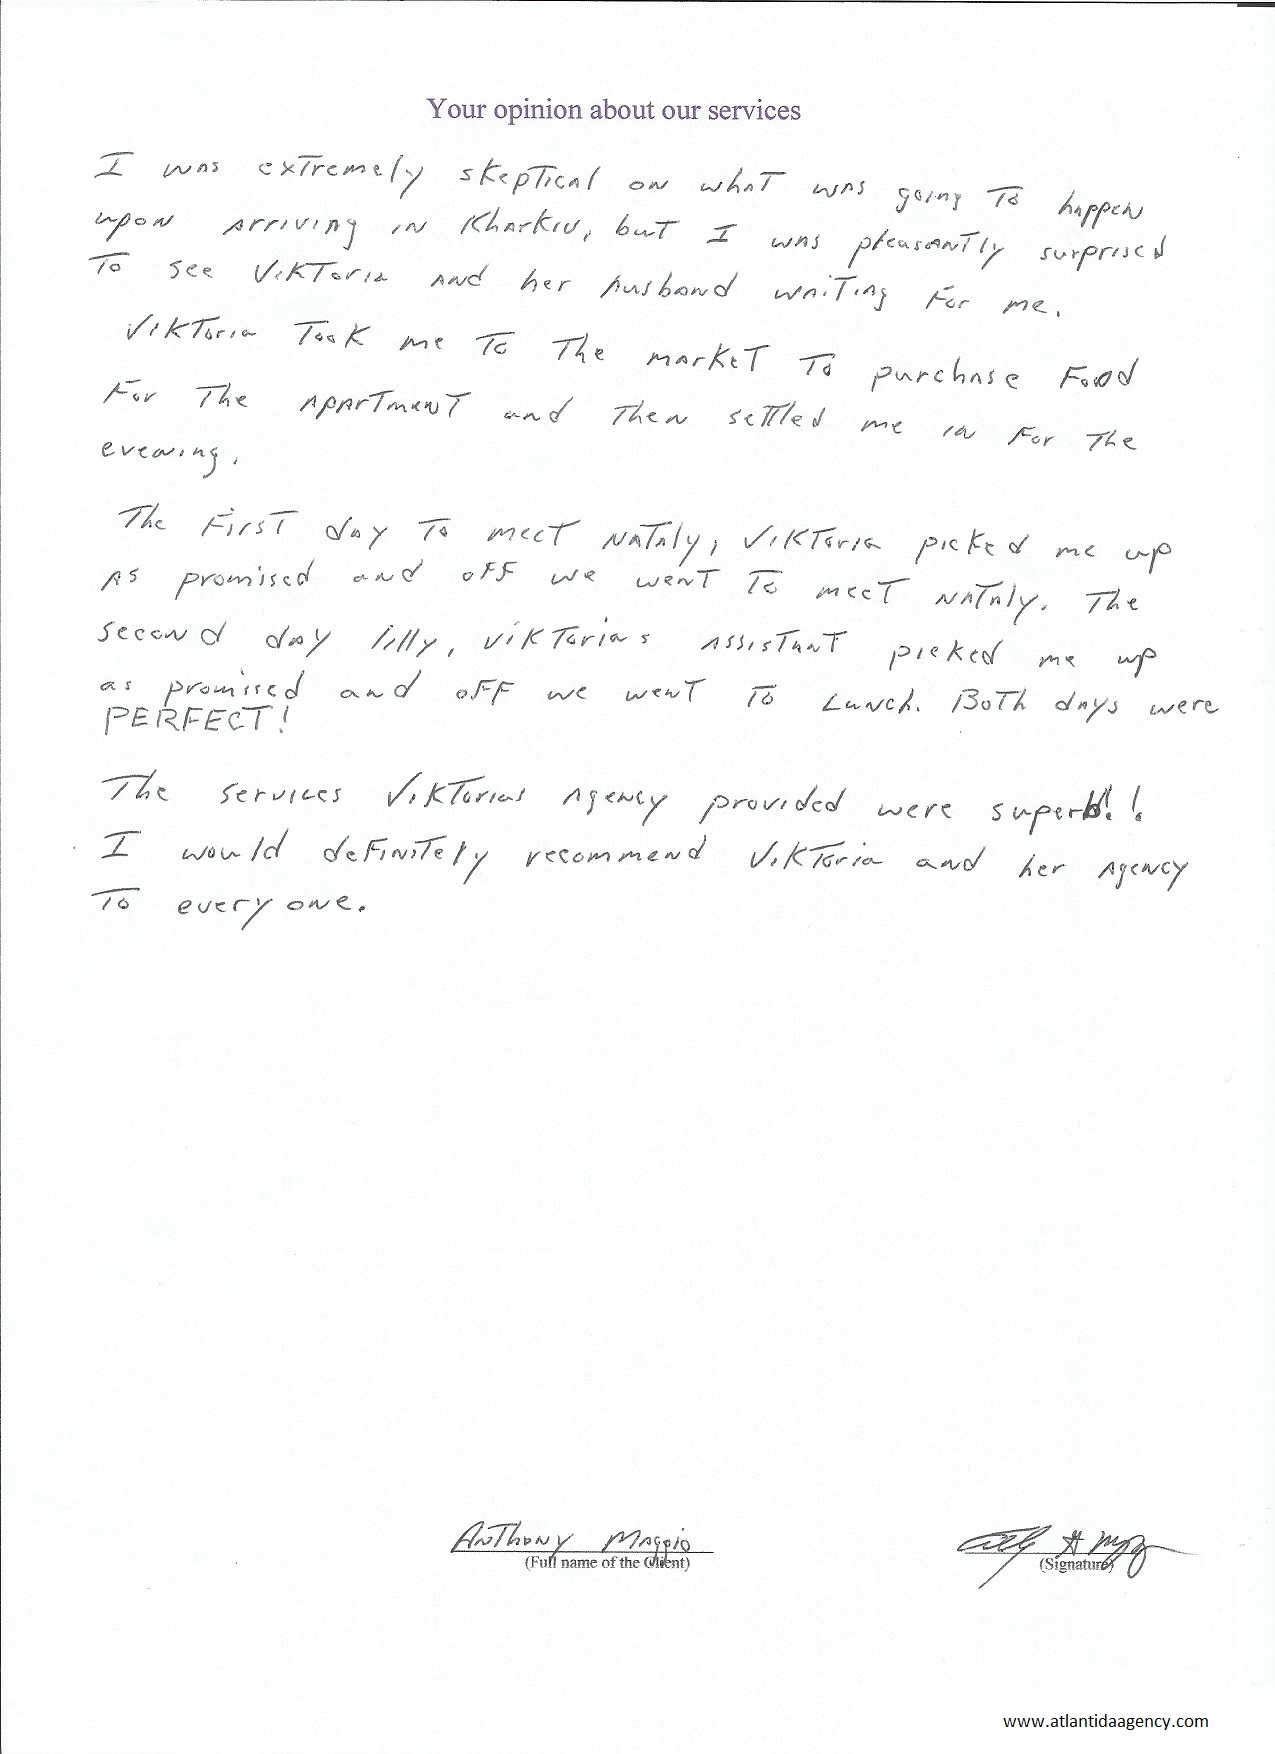 Your opinion about our services
I was extremely skeptical on what was going to happen
upon arriving in Kharkiv, but I was pleasantly surprised
to see Viktoria and her husband waiting for me.
Viktoria took me to the market to purchase food
for the apartment and then settled me in for the
evening.
The first day to meet Nataly, Viktoria picked me up
as promised and off we went to meet Nataly. The
second day lilly, Viktorias assistant picked me up
as promised and off we went to lunch. Both days were
PERFECT!
The services Viktorias agency provided were superb!!
I would definitely recommend Viktoria and her agency
to everyone.
Anthony Maggio
(Full name of the Client)
(Signature)
www.atlantidaagency.com